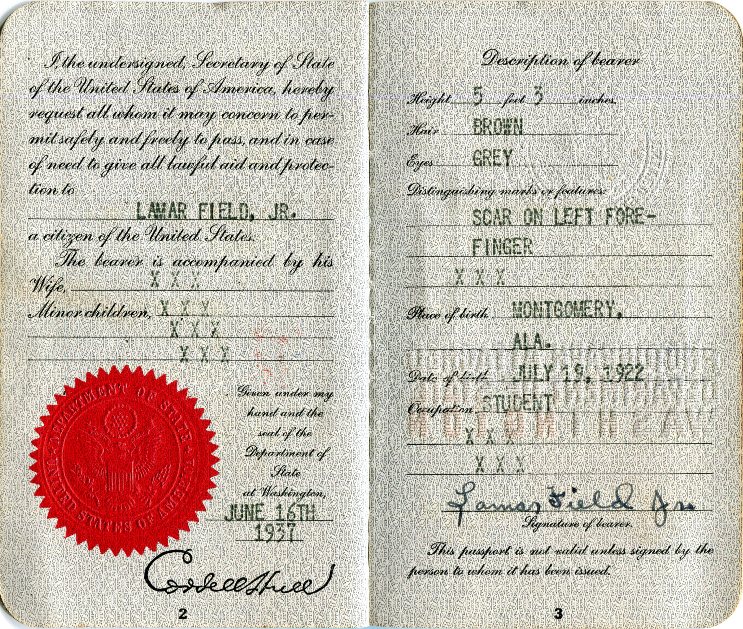 I the undersigned, Secretary of State
of the United States of America, hereby
request all whom it may concern to per-
mit safely and freely to pass, and in case
of need to give all lawful aid and protec-
tion to
LAMAR FIELD, JR.
a citizen of the United States.
The bearer is accompanied by his
Wife, X X X
Minor children, X X X
X X X
X X X
Given under my
hand and the
seal of the
Department of
State
at Washington,
JUNE 16TH
1937
DEPARTMENT OF STATE
UNITED STATES OF AMERICA
Cordell Hull
2
Description of bearer
Height 5 feet 3 inches.
Hair BROWN
Eyes GREY
Distinguishing marks or features:
SCAR ON LEFT FORE-
FINGER
X X X
Place of birth MONTGOMERY,
ALA.
Date of birth JULY 19, 1922
Occupation STUDENT
X X X
X X X
Lamar Field Jr.
Signature of bearer.
This passport is not valid unless signed by the
person to whom it has been issued.
3